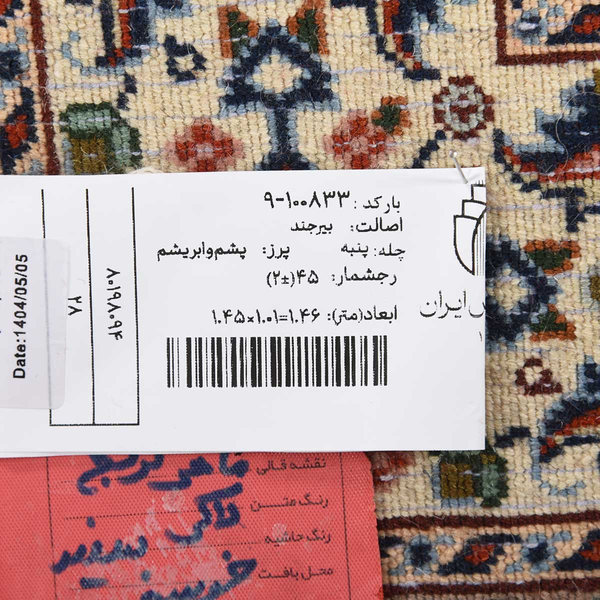 بارکد : ۹-۱۰۰۸۳۳
اصالت: بیرجند
چله: پنبه پرز: پشم‌وابریشم
رجشمار: ۴۵(±۲)
ابعاد(متر): ۱.۴۵×۱.۰۱=۱.۴۶
ایران
۸۰۱۹۸۰۹۴
۲۸
Date:1404/05/05
نقشه قالی
رنگ متن
لاکی
رنگ حاشیه
سفید
محل بافت